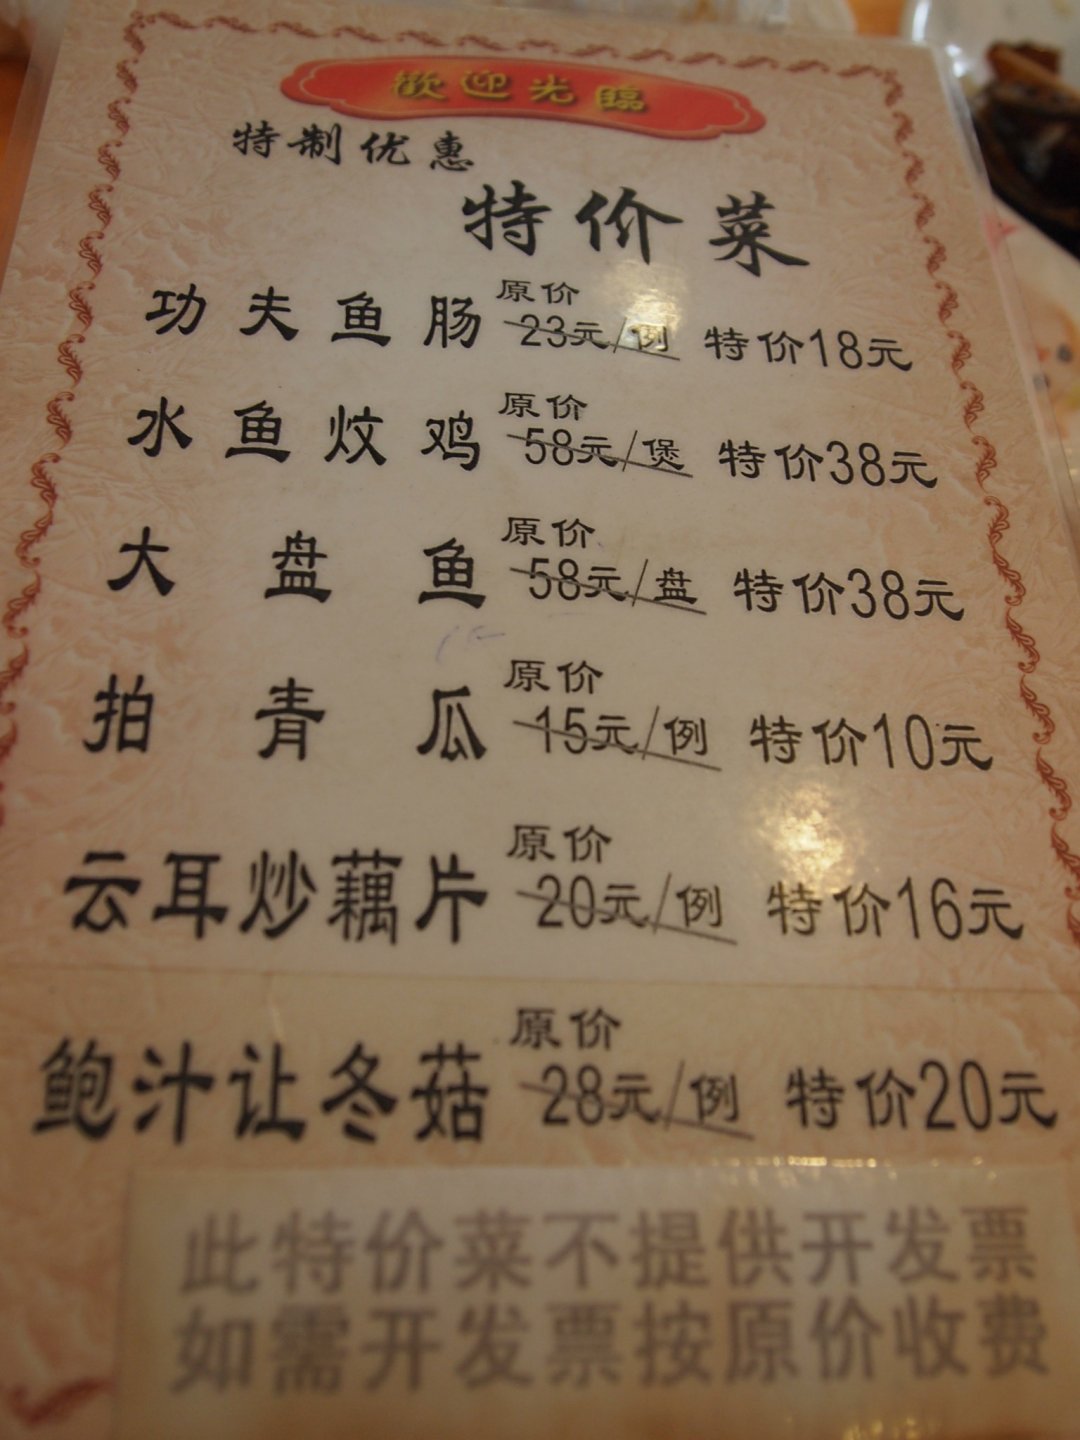 歡迎光臨
特制优惠
特价菜
功夫鱼肠 原价 23元/例 特价18元
水鱼炆鸡 原价 58元/煲 特价38元
大盘鱼 原价 58元/盘 特价38元
拍青瓜 原价 15元/例 特价10元
云耳炒藕片 原价 20元/例 特价16元
鲍汁让冬菇 原价 28元/例 特价20元
此特价菜不提供开发票
如需开发票按原价收费